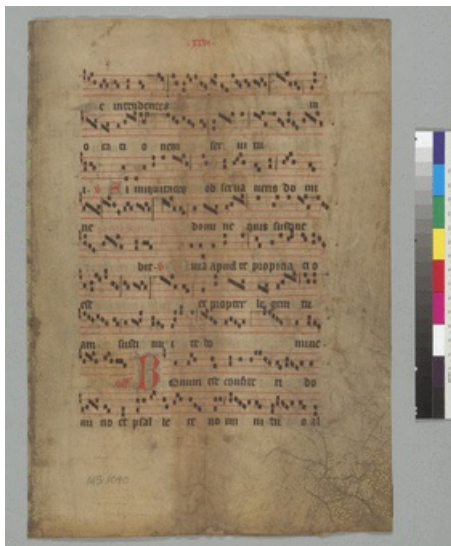 e intendentes in
o ra ti o nem ser ui tu
i. iniquitates ob serua ueris do mi
ne domi ne quis sustine
apud te propicia ti o
est et propter le gem tu
am susti nu i te do mine.
Bonum est confite ri do
mi no et psal le re no mi ni tu o al
MS 1040